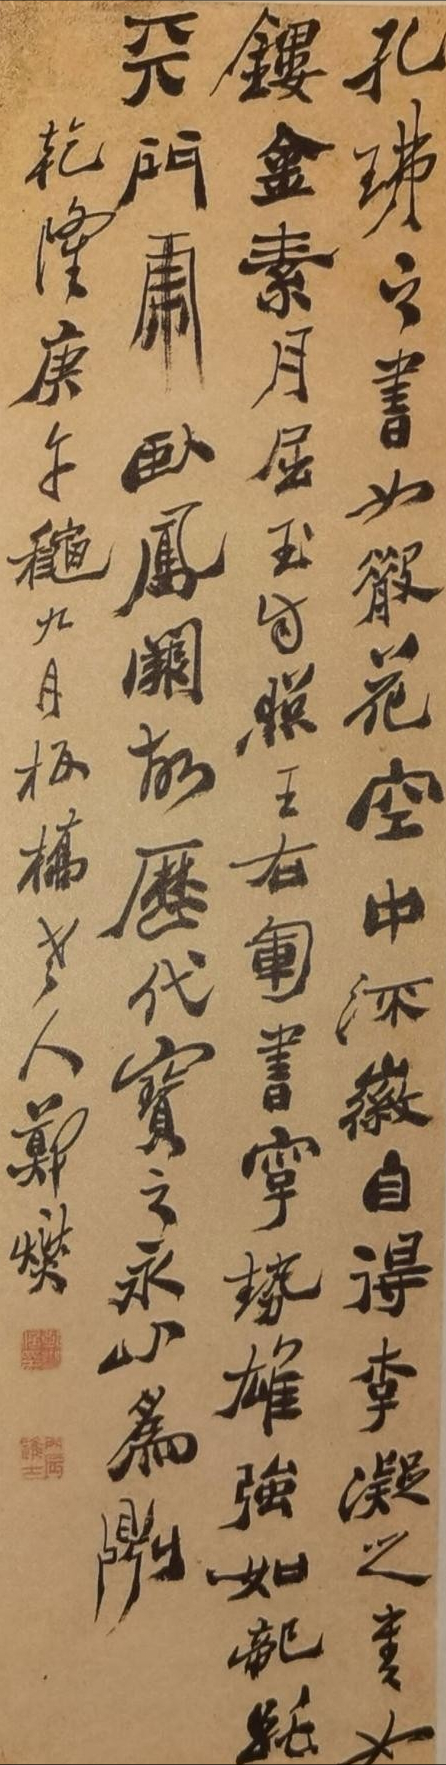 孔琳之書如散花空中流徽自得李凝之書如
鏤金素月屈玉自照王右軍書字勢雄強如龍跳
天門虎卧鳳闕故歷代寶之永以為訓
乾隆庚午穐九月板橋老人鄭燮